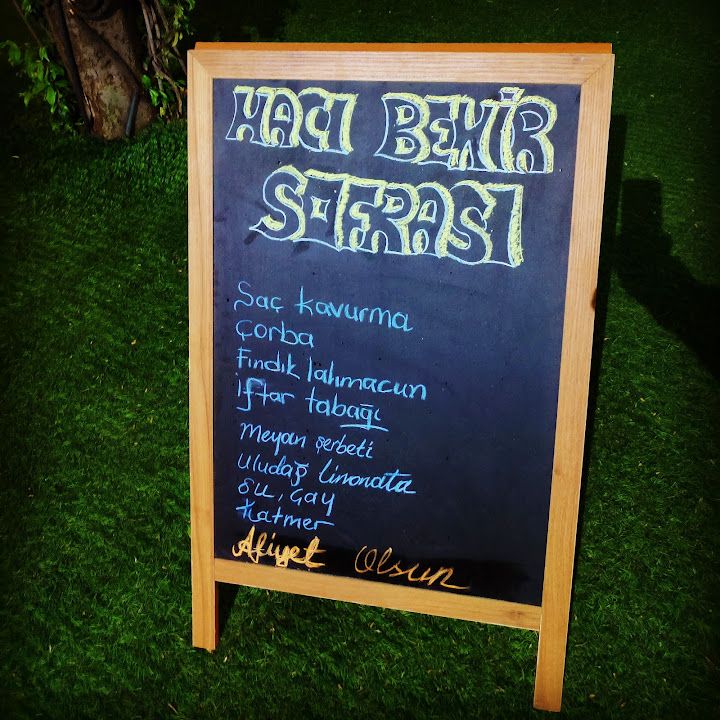 HACI BEKİR
SOFRASI
Saç kavurma
Çorba
Fındık lahmacun
İftar tabağı
Meyan şerbeti
Uludağ Limonata
Su, Çay
Katmer
Afiyet Olsun